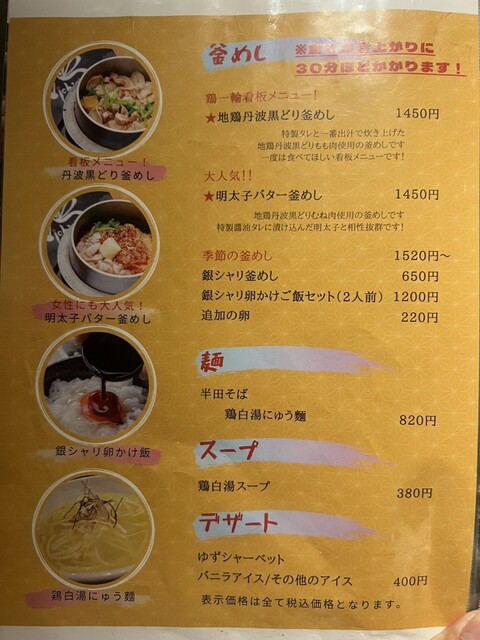 釜めし
上がりに
30分ほどかかります！
鶏一輪看板メニュー！
★地鶏丹波黒どり釜めし 1450円
特製タレと一番出汁で炊き上げた
地鶏丹波黒どりもも肉使用の釜めしです
一度は食べてほしい看板メニューです！
大人気！！
★明太子バター釜めし 1450円
地鶏丹波黒どりむね肉使用の釜めしです
特製醤油タレに漬け込んだ明太子と相性抜群です！
季節の釜めし 1520円～
銀シャリ釜めし 650円
銀シャリ卵かけご飯セット（2人前） 1200円
追加の卵 220円
麺
半田そば
鶏白湯にゅう麺 820円
スープ
鶏白湯スープ 380円
デザート
ゆずシャーベット
バニラアイス/その他のアイス 400円
表示価格は全て税込価格となります。
看板メニュー！
丹波黒どり釜めし
女性にも大人気！
明太子バター釜めし
銀シャリ卵かけ飯
鶏白湯にゅう麺